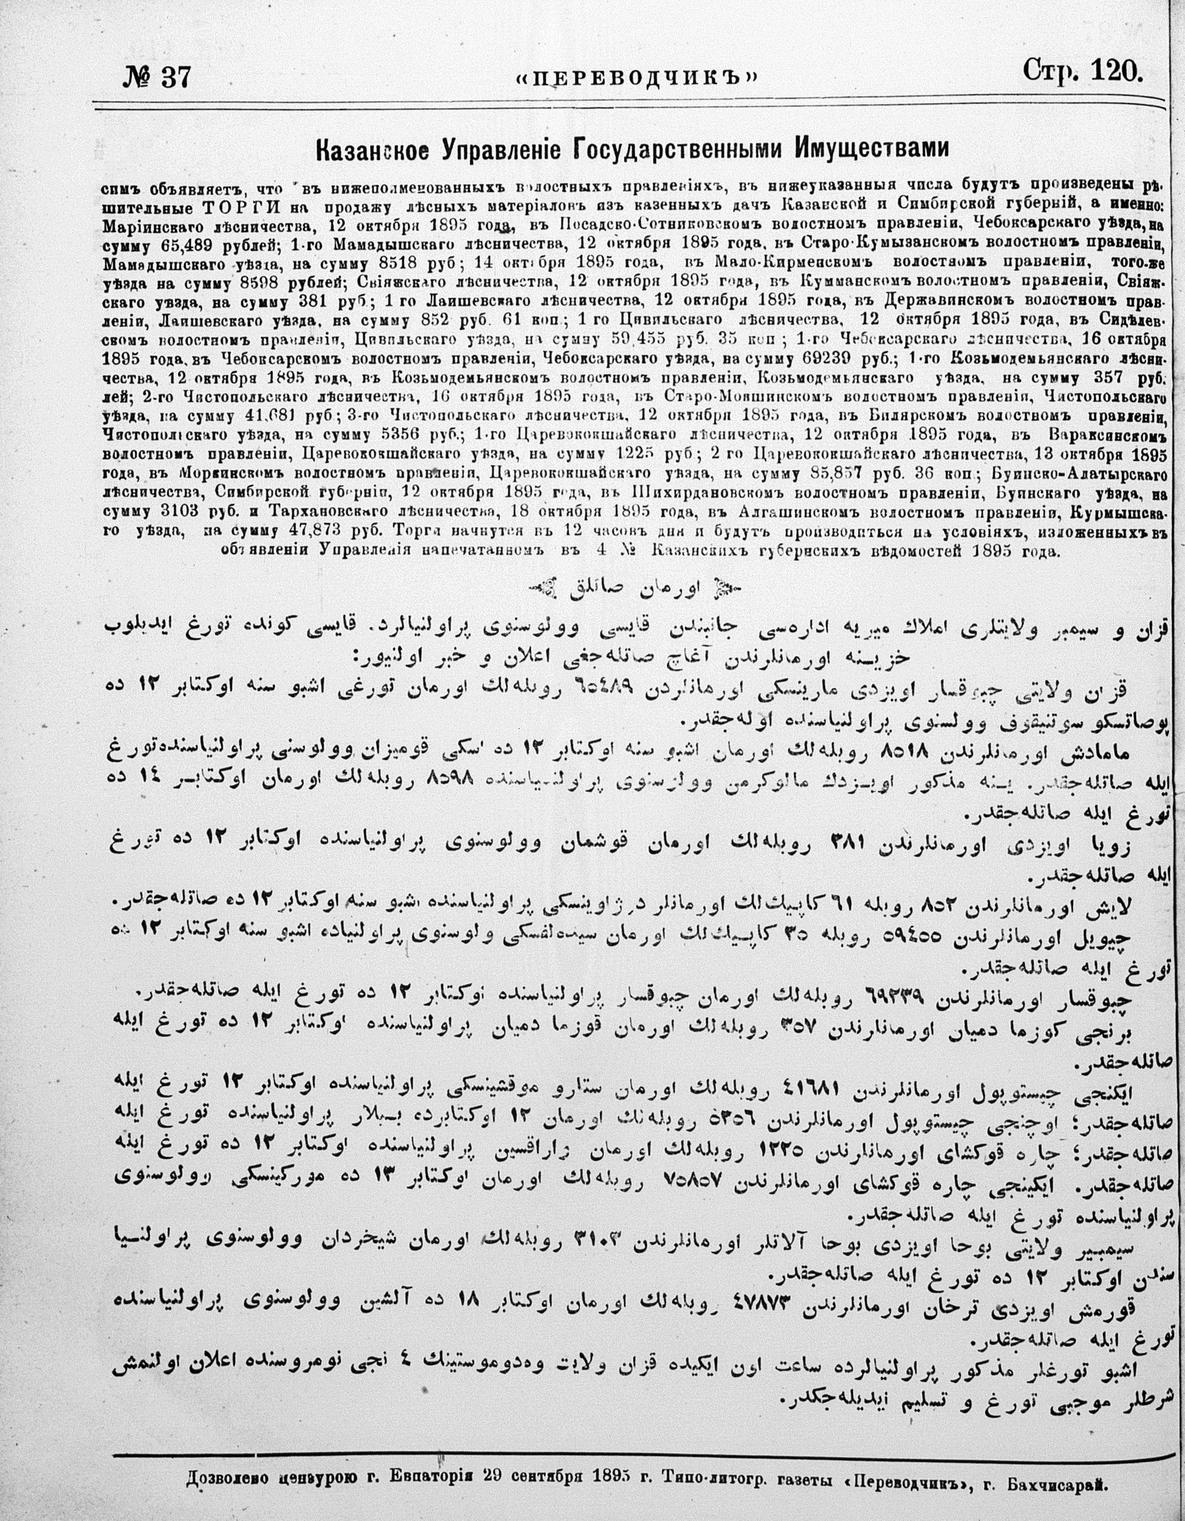 № 37
«ПЕРЕВОДЧИКЪ»
Стр. 120.
Казанское Управленіе Государственными Имуществами
симъ объявляетъ, что въ нижепоименованныхъ волостныхъ правленіяхъ, въ нижеуказанныя числа будутъ произведены рѣ-
шительные ТОРГИ на продажу лѣсныхъ матеріаловъ изъ казенныхъ дачъ Казанской и Симбирской губерній, а именно:
Маріинскаго лѣсничества, 12 октября 1895 года, въ Посадско-Сотниковскомъ волостномъ правленіи, Чебоксарскаго уѣзда, на
сумму 65,489 рублей; 1-го Мамадышскаго лѣсничества, 12 октября 1895 года, въ Старо-Кумызанскомъ волостномъ правленіи,
Мамадышскаго уѣзда, на сумму 8518 руб; 14 октября 1895 года, въ Мало-Кирменскомъ волостномъ правленіи, того-же
уѣзда на сумму 8598 рублей; Свіяжскаго лѣсничества, 12 октября 1895 года, въ Кумманскомъ волостномъ правленіи, Свіяж-
скаго уѣзда, на сумму 381 руб; 1 го Лаишевскаго лѣсничества, 12 октября 1895 года, въ Державинскомъ волостномъ прав-
леніи, Лаишевскаго уѣзда, на сумму 852 руб. 61 коп; 1 го Цивильскаго лѣсничества, 12 октября 1895 года, въ Сидѣлев-
скомъ волостномъ правленіи, Цивильскаго уѣзда, на сумму 59,455 руб. 35 коп; 1-го Чебоксарскаго лѣсничества, 16 октября
1895 года, въ Чебоксарскомъ волостномъ правленіи, Чебоксарскаго уѣзда, на сумму 69239 руб.; 1-го Козьмодемьянскаго лѣсни-
чества, 12 октября 1895 года, въ Козьмодемьянскомъ волостномъ правленіи, Козьмодемьянскаго уѣзда, на сумму 357 руб.
лей; 2-го Чистопольскаго лѣсничества, 16 октября 1895 года, въ Старо-Мокшинскомъ волостномъ правленіи, Чистопольскаго
уѣзда, на сумму 41,681 руб; 3-го Чистопольскаго лѣсничества, 12 октября 1895 года, въ Билярскомъ волостномъ правленіи,
Чистопольскаго уѣзда, на сумму 5356 руб.; 1-го Царевококшайскаго лѣсничества, 12 октября 1895 года, въ Вараксинскомъ
волостномъ правленіи, Царевококшайскаго уѣзда, на сумму 1225 руб; 2 го Царевококшайскаго лѣсничества, 13 октября 1895
года, въ Моркинскомъ волостномъ правленіи, Царевококшайскаго уѣзда, на сумму 85,857 руб. 36 коп; Буинско-Алатырскаго
лѣсничества, Симбирской губерніи, 12 октября 1895 года, въ Шихирдановскомъ волостномъ правленіи, Буинскаго уѣзда, на
сумму 3103 руб. и Тархановскаго лѣсничества, 18 октября 1895 года, въ Алгашинскомъ волостномъ правленіи, Курмышска-
го уѣзда, на сумму 47,873 руб. Торги начнутся въ 12 часовъ дня и будутъ производиться на условіяхъ, изложенныхъ въ
объявленіи Управленія напечатанномъ въ 4 № Казанскихъ губернскихъ вѣдомостей 1895 года.
اورمان صاتلق
قزان و سیمبر ولایتلری املاك میریه اداره‌سی جانبندن قایسی وولوسنوی پراولنیالرد. قایسی كونده تورغ ایدیلوب
خزینه اورمانلرندن آغاچ صاتله‌جغی اعلان و خبر اولنیور:
قزان ولایتی چبوقسار اویزدی مارینسكی اورمانلردن ٦٥٤٨٩ روبله‌لك اورمان تورغی اشبو سنه اوكتابر ١٢ ده
پوصاتسكو سوتنیقوف وولسنوی پراولنیاسنده اوله‌جقدر.
مامادش اورمانلرندن ٨٥١٨ روبله‌لك اورمان اشبو سنه اوكتابر ١٢ ده اسكی قومیزان وولوسنی پراولنیاسنده تورغ
ایله صاتله‌جقدر. ینه مذكور اویزدك مالوكرمن وولوسنوی پراولنیاسنده ٨٥٩٨ روبله‌لك اورمان اوكتابر ١٤ ده
تورغ ایله صاتله‌جقدر.
زویا اویزدی اورمانلرندن ٣٨١ روبله‌لك اورمان قوشمان وولوسنوی پراولنیاسنده اوكتابر ١٢ ده تورغ
ایله صاتله‌جقدر.
لایش اورمانلرندن ٨٥٢ روبله ٦١ كاپیك‌لك اورمانلر درژاوینسكی پراولنیاسنده اشبو سنه اوكتابر ١٢ ده صاتله‌جقدر.
چیویل اورمانلرندن ٥٩٤٥٥ روبله ٣٥ كاپیك‌لك اورمان سیده‌لفسكی ولوسنوی پراولنیاده اشبو سنه اوكتابر ١٢ ده
تورغ ایله صاتله‌جقدر.
چبوقسار اورمانلرندن ٦٩٢٣٩ روبله‌لك اورمان چبوقسار پراولنیاسنده اوكتابر ١٢ ده تورغ ایله صاتله‌جقدر.
برنجی كوزما دمیان اورمانلرندن ٣٥٧ روبله‌لك اورمان قوزما دمیان پراولنیاسنده اوكتابر ١٢ ده تورغ ایله
صاتله‌جقدر.
ایكنجی چیستوپول اورمانلرندن ٤١٦٨١ روبله‌لك اورمان ستارو موقشینسكی پراولنیاسنده اوكتابر ١٢ تورغ ایله
صاتله‌جقدر؛ اوچنجی چیستوپول اورمانلرندن ٥٣٥٦ روبله‌لك اورمان ١٢ اوكتابرده بیلار پراولنیاسنده تورغ ایله
صاتله‌جقدر؛ چاره قوكشای اورمانلرندن ١٢٢٥ روبله‌لك اورمان واراقسین پراولنیاسنده اوكتابر ١٢ ده تورغ ایله
صاتله‌جقدر. ایكینجی چاره قوكشای اورمانلرندن ٧٥٨٥٧ روبله‌لك اورمان اوكتابر ١٣ ده موركینسكی وولوسنوی
پراولنیاسنده تورغ ایله صاتله‌جقدر.
سیمبیر ولایتی بوحا اویزدی بوحا آلاتلر اورمانلرندن ٣١٠٣ روبله‌لك اورمان شیخردان وولوسنوی پراولنیا
سندن اوكتابر ١٢ ده تورغ ایله صاتله‌جقدر.
قورمش اویزدی ترخان اورمانلرندن ٤٧٨٧٣ روبله‌لك اورمان اوكتابر ١٨ ده آلشین وولوسنوی پراولنیاسنده
تورغ ایله صاتله‌جقدر.
اشبو تورغلر مذكور پراولنیالرده ساعت اون ایكیده قزان ولایت وه‌دوموستینك ٤ نجی نومروسنده اعلان اولنمش
شرطلر موجبی تورغ و تسلیم ایدیله‌جكدر.
Дозволено цензурою г. Евпаторія 29 сентября 1895 г. Типо-литогр. газеты «Переводчикъ», г. Бахчисарай.